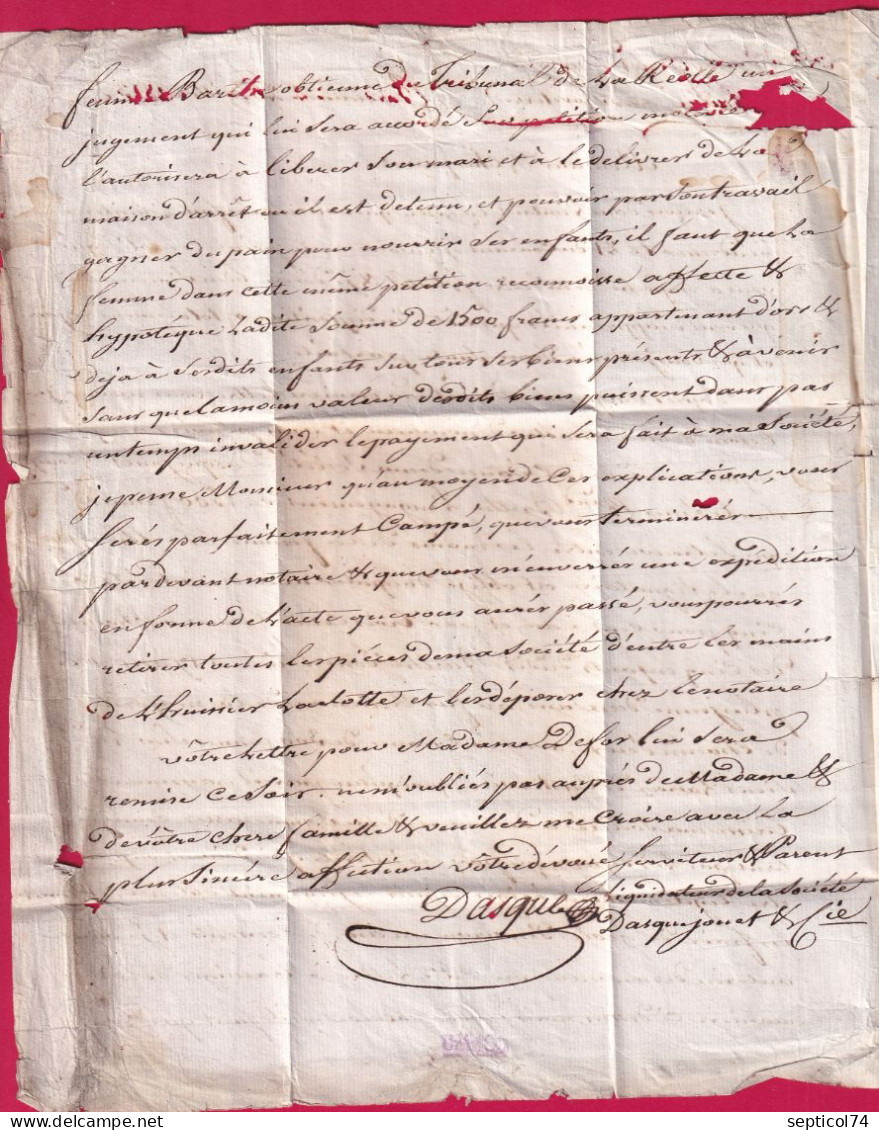 femme Barite obtienne du Tribunal de La Réolle un
jugement qui lui sera accordé Sur petition
l'autorisera à liberer Son mari et à le delivrer de La
maison d'arrêt ou il est detenu, et pouvoir par Son travail
gagner du pain pour nourrir Ses enfants, il faut que La
femme dans cette même petition reconnoisse affecte &
hypotéque Ladite Somme de 1500 francs appartenant d'ors &
deja à Sesdits enfants Sur tous Ses biens présents & à venir
Sans que la moins valeur desdits biens puissent dans pas
un temps invalider le payement qui Sera fait à ma Société,
je pense Monsieur qu'au moyen de Ces explications, vous
Serés parfaitement Campé, que vous terminerés
pardevant notaire & que vous m'enverrés une expédition
en forme de L'acte que vous aurés passé, vous pourrés
retirer toutes les piéces de ma Société d'entre les mains
de L'huissier Lalotte et les déposer chez le notaire
vôtre Lettre pour Madame Defor lui Sera
remise Ce Soir. ne m'oubliés pas auprés de Madame &
de vôtre chere famille & veuillez me Croire avec La
plus Sincére affection vôtre dévoué Serviteur & Parent
Dasque
Liquidateur de la Société
Dasque jouet & Cie
septicol74